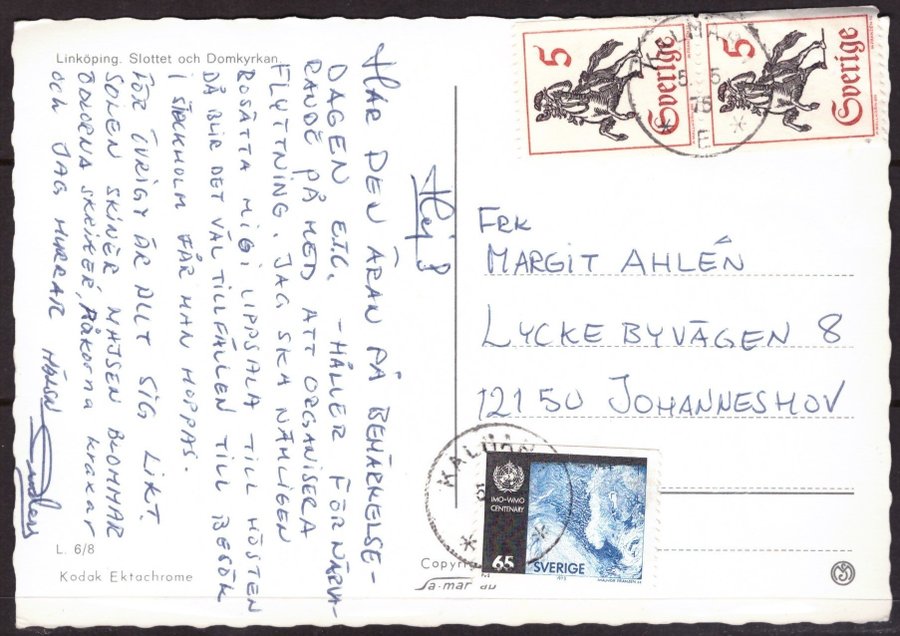 Linköping. Slottet och Domkyrkan
Hej!
HAR DEN ÄRAN PÅ BEMÄRKELSE-
DAGEN ETC. – HÅLLER FÖR NÄRVA-
RANDE PÅ MED ATT ORGANISERA
FLYTTNING. JAG SKA NÄMLIGEN
BOSÄTTA MIG I UPPSALA TILL HÖSTEN
DÅ BLIR DET VÄL TILLFÄLLEN TILL BESÖK
I STOCKHOLM FÅR MAN HOPPAS.
FÖR ÖVRIGT ÄR ALLT SIG LIKT.
SOLEN SKINER MAJSEN BLOMMAR
SKRIKER, RÅKORNA KRAXAR
och JAG HURRAR
L. 6/8
Kodak Ektachrome
5
Sverige
5
Sverige
KALMAR
5 5
75
E
FRK
MARGIT AHLÉN
LYCKEBYVÄGEN 8
121 50 JOHANNESHOV
KALMAR
IMO-WMO
CENTENARY
65
SVERIGE
1973
Copyr
Sa-mar